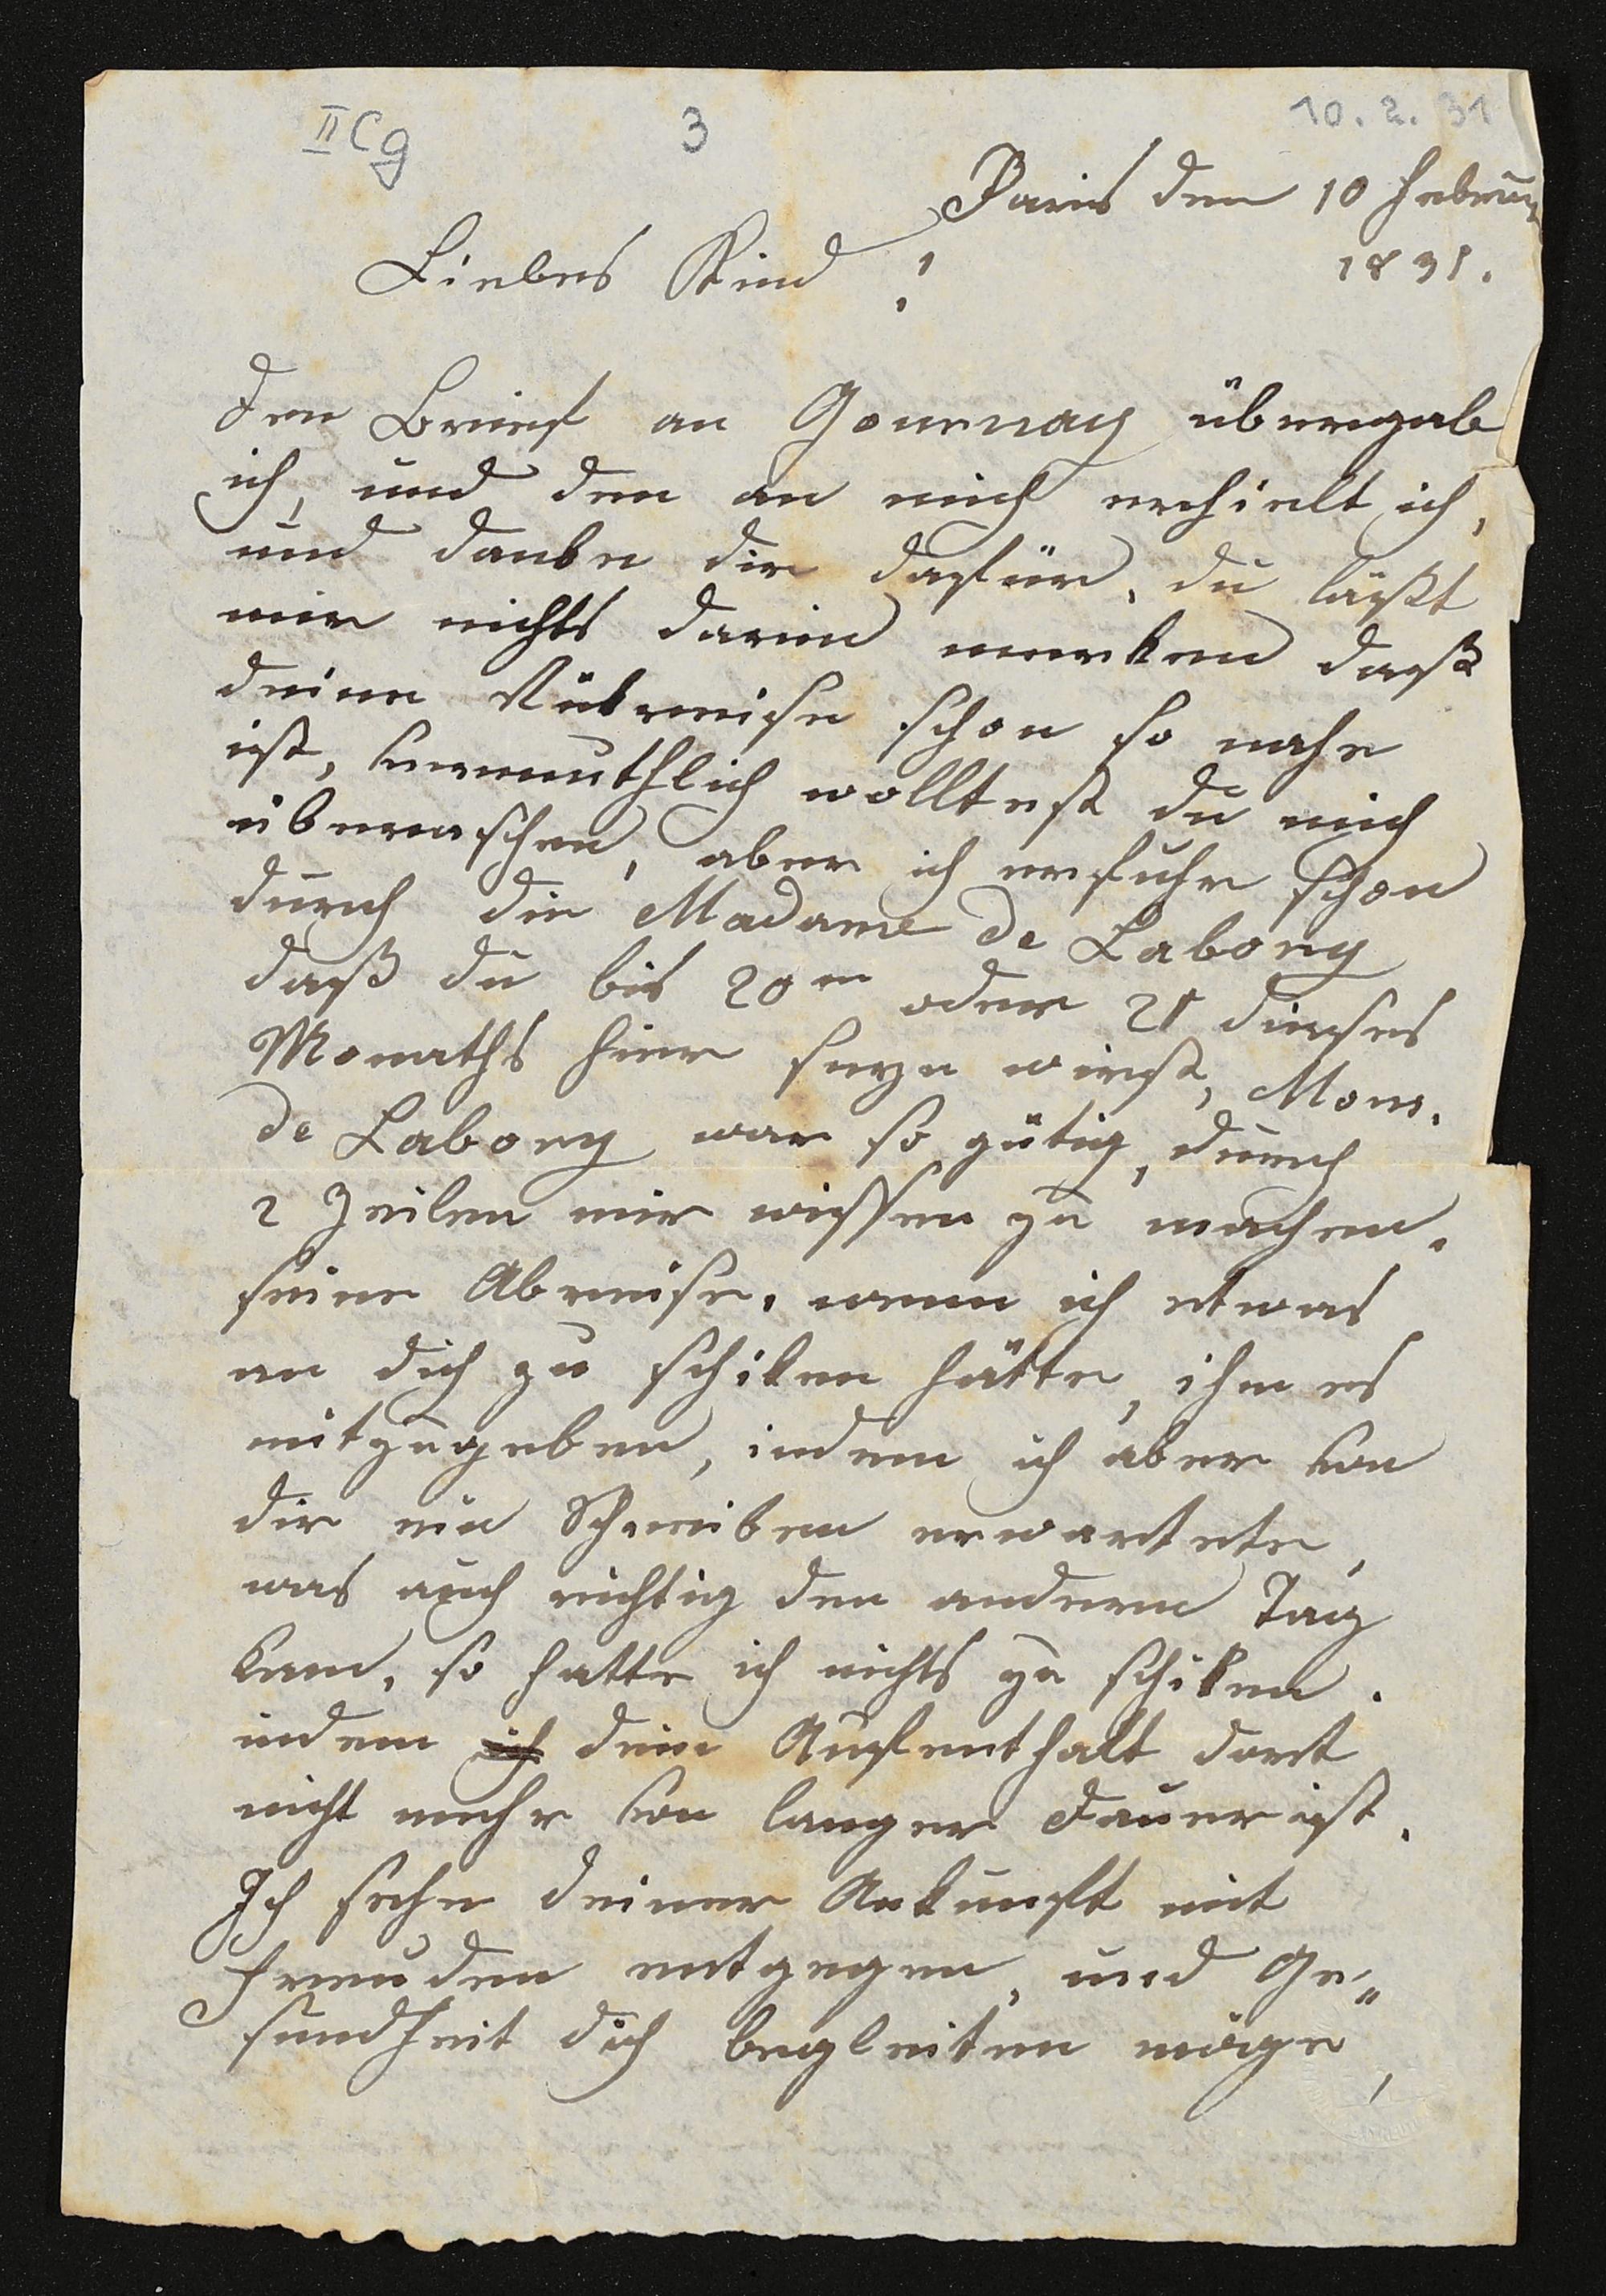 II Cg 3 10. 2. 31
Paris den 10 Februar
Liebes Kind! 1831.
den Brief an Gournay übergab
ich, und den an mich erhielt ich,
und danke dir dafür. du läßt
mir nichts darin merken daß
deine Rükreise schon so nahe
ist, vermuthlich wolltest du mich
überraschen, aber ich erfuhr schon
durch die Madame de Labory
daß du bis 20ten oder 21 dieses
Monaths hier seyn wirst, Mons.
de Labory war so gütig, durch
2 Zeilen mir wissen zu machen.
seine Abreise, wenn ich etwas
an dich zu schiken hätte, ihm es
mitzugeben, indem ich aber von
dir ein Schreiben erwartete,
was auch richtig den andern Tag
kam, so hatte ich nichts zu schiken.
indem ich dein Aufenthalt dort
nicht mehr von langer Dauer ist.
Ich sehe deiner Ankunft mit
Freuden entgegen, und Ge„
sundheit dich begleiten möge,